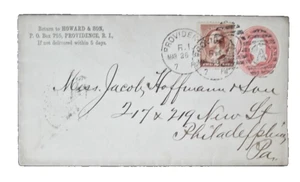 Return to HOWARD & SON,
P. O. Box 759, PROVIDENCE, R. I.,
If not delivered within 5 days.
PROVIDENCE
R.I.
MAR 26
7
Mess. Jacob Hoffmann & Son
217 & 219 New St
Philadelphia
Pa.